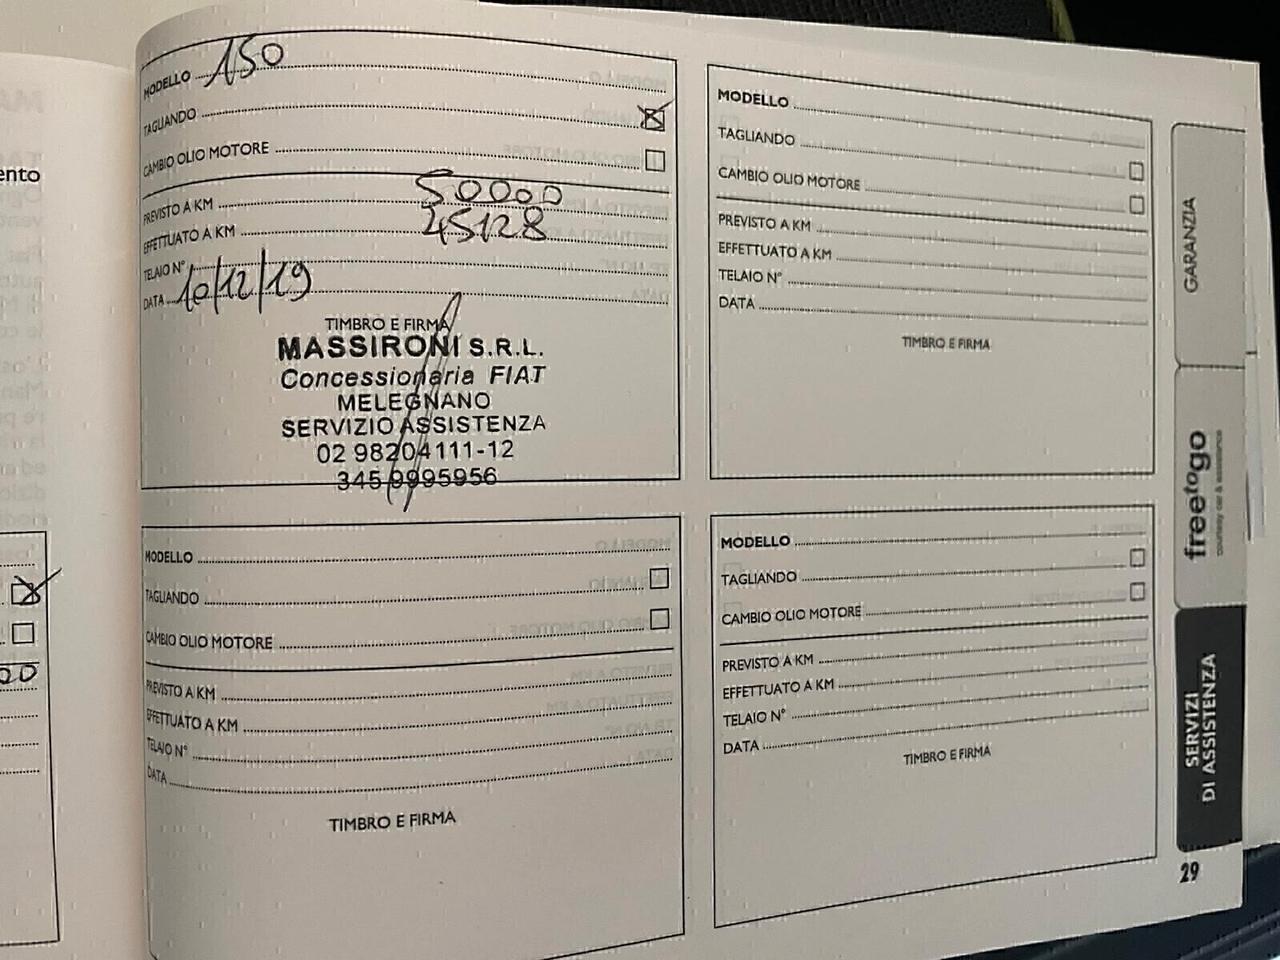 MODELLO 150
TAGLIANDO
CAMBIO OLIO MOTORE
PREVISTO A KM 50000
EFFETTUATO A KM 45128
TELAIO N°
DATA 10/12/19
TIMBRO E FIRMA
MASSIRONI S.R.L.
Concessionaria FIAT
MELEGNANO
SERVIZIO ASSISTENZA
02 98204111-12
345 9995956
MODELLO
TAGLIANDO
CAMBIO OLIO MOTORE
PREVISTO A KM
EFFETTUATO A KM
TELAIO N°
DATA
TIMBRO E FIRMA
MODELLO
TAGLIANDO
CAMBIO OLIO MOTORE
PREVISTO A KM
EFFETTUATO A KM
TELAIO N°
DATA
TIMBRO E FIRMA
MODELLO
TAGLIANDO
CAMBIO OLIO MOTORE
PREVISTO A KM
EFFETTUATO A KM
TELAIO N°
DATA
TIMBRO E FIRMA
GARANZIA
freetogo
courtesy car & assistance
SERVIZI
DI ASSISTENZA
29
ento